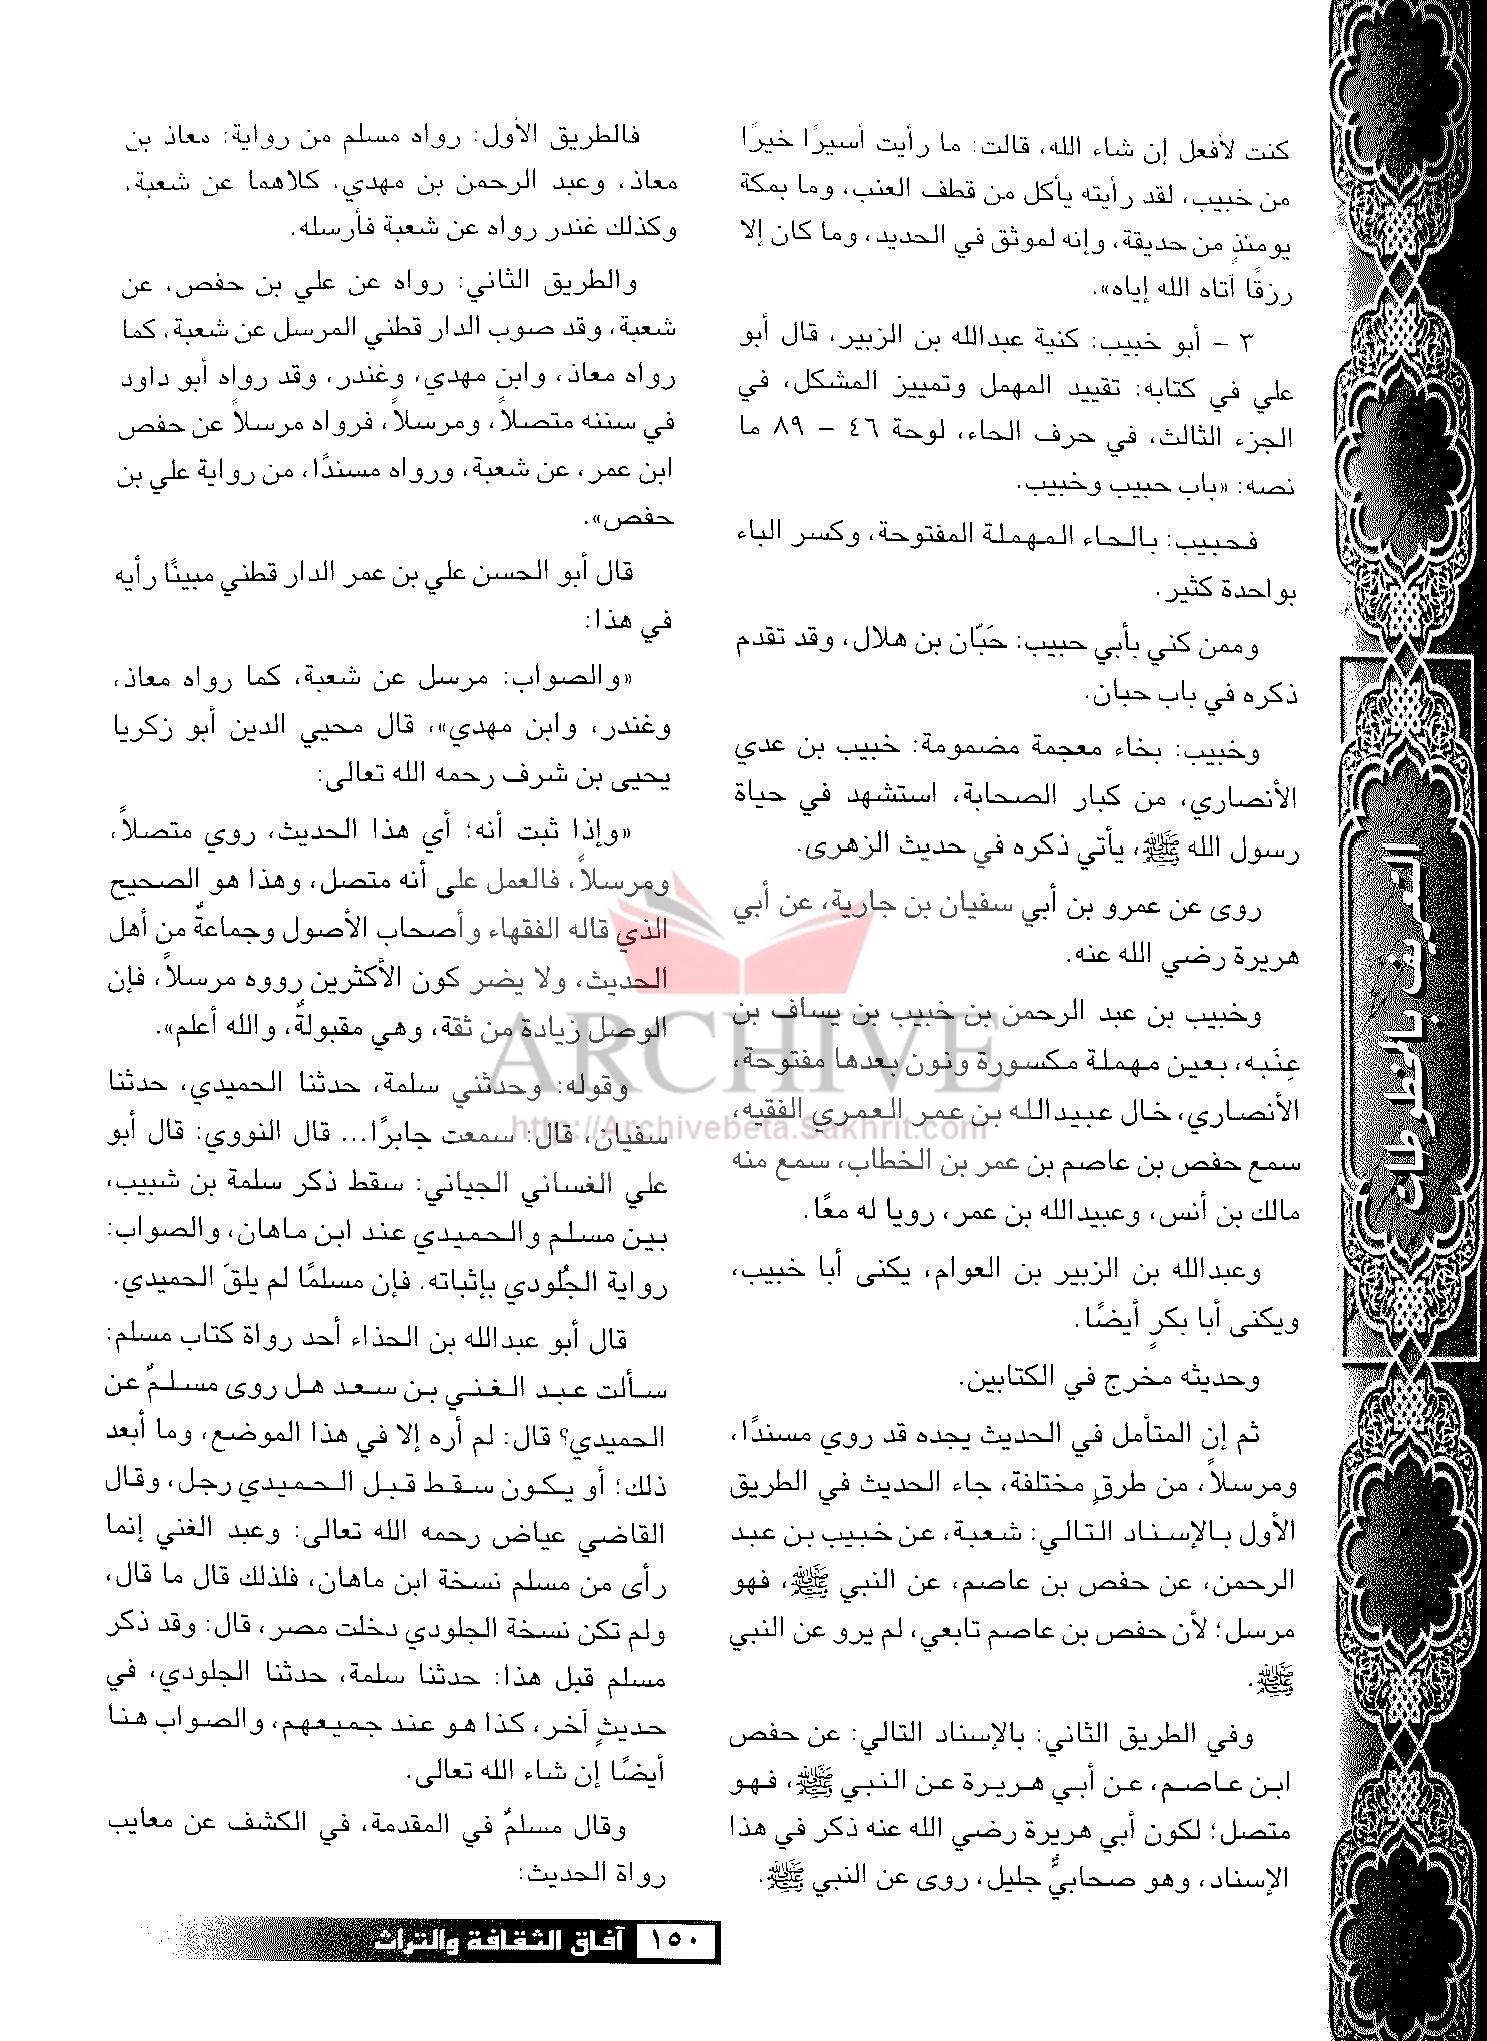 كنت لأفعل إن شاء الله، قالت: ما رأيت أسيرًا خيرًا
من خبيب، لقد رأيته يأكل من قطف العنب، وما بمكة
يومئذٍ من حديقة، وإنه لموثق في الحديد، وما كان إلا
رزقًا آتاه الله إياه».
٣ - أبو خبيب: كنية عبدالله بن الزبير، قال أبو
علي في كتابه: تقييد المهمل وتمييز المشكل، في
الجزء الثالث، في حرف الحاء، لوحة ٤٦ - ٨٩ ما
نصه: «باب حبيب وخبيب.
فحبيب: بالحاء المهملة المفتوحة، وكسر الباء
بواحدة كثير.
وممن كني بأبي حبيب: حَبّان بن هلال، وقد تقدم
ذكره في باب حبان.
وخبيب: بخاء معجمة مضمومة: خبيب بن عدي
الأنصاري، من كبار الصحابة، استشهد في حياة
رسول الله ﷺ، يأتي ذكره في حديث الزهرى.
روى عن عمرو بن أبي سفيان بن جارية، عن أبي
هريرة رضي الله عنه.
وخبيب بن عبد الرحمن بن خبيب بن يساف بن
عِنَبه، بعين مهملة مكسورة ونون بعدها مفتوحة،
الأنصاري، خال عبيدالله بن عمر العمري الفقيه،
سمع حفص بن عاصم بن عمر بن الخطاب، سمع منه
مالك بن أنس، وعبيدالله بن عمر، رويا له معًا.
وعبدالله بن الزبير بن العوام، يكنى أبا خبيب،
ويكنى أبا بكرٍ أيضًا.
وحديثه مخرج في الكتابين.
ثم إن المتأمل في الحديث يجده قد روي مسندًا،
ومرسلاً، من طرقٍ مختلفة، جاء الحديث في الطريق
الأول بالإسناد التالي: شعبة، عن خبيب بن عبد
الرحمن، عن حفص بن عاصم، عن النبي ﷺ، فهو
مرسل؛ لأن حفص بن عاصم تابعي، لم يرو عن النبي
ﷺ.
وفي الطريق الثاني: بالإسناد التالي: عن حفص
ابن عاصم، عن أبي هريرة عن النبي ﷺ، فهو
متصل؛ لكون أبي هريرة رضي الله عنه ذكر في هذا
الإسناد، وهو صحابيٌّ جليل، روى عن النبي ﷺ.
فالطريق الأول: رواه مسلم من رواية: معاذ بن
معاذ، وعبد الرحمن بن مهدي، كلاهما عن شعبة،
وكذلك غندر رواه عن شعبة فأرسله.
والطريق الثاني: رواه عن علي بن حفص، عن
شعبة، وقد صوب الدار قطني المرسل عن شعبة، كما
رواه معاذ، وابن مهدي، وغندر، وقد رواه أبو داود
في سننه متصلاً، ومرسلاً، فرواه مرسلاً عن حفص
ابن عمر، عن شعبة، ورواه مسندًا، من رواية علي بن
حفص».
قال أبو الحسن علي بن عمر الدار قطني مبينًا رأيه
في هذا:
«والصواب: مرسل عن شعبة، كما رواه معاذ،
وغندر، وابن مهدي»، قال محيي الدين أبو زكريا
يحيى بن شرف رحمه الله تعالى:
«وإذا ثبت أنه؛ أي هذا الحديث، روي متصلاً،
ومرسلاً، فالعمل على أنه متصل، وهذا هو الصحيح
الذي قاله الفقهاء وأصحاب الأصول وجماعةٌ من أهل
الحديث، ولا يضر كون الأكثرين رووه مرسلاً، فإن
الوصل زيادة من ثقة، وهي مقبولةٌ، والله أعلم».
وقوله: وحدثني سلمة، حدثنا الحميدي، حدثنا
سفيان، قال: سمعت جابرًا... قال النووي: قال أبو
علي الغساني الجياني: سقط ذكر سلمة بن شبيب،
بين مسلم والحميدي عند ابن ماهان، والصواب:
رواية الجُلودي بإثباته. فإن مسلمًا لم يلقَ الحميدي.
قال أبو عبدالله بن الحذاء أحد رواة كتاب مسلم:
سألت عبد الغني بن سعد هل روى مسلمٌ عن
الحميدي؟ قال: لم أره إلا في هذا الموضع، وما أبعد
ذلك؛ أو يكون سقط قبل الحميدي رجل، وقال
القاضي عياض رحمه الله تعالى: وعبد الغني إنما
رأى من مسلم نسخة ابن ماهان، فلذلك قال ما قال،
ولم تكن نسخة الجلودي دخلت مصر، قال: وقد ذكر
مسلم قبل هذا: حدثنا سلمة، حدثنا الجلودي، في
حديثٍ آخر، كذا هو عند جميعهم، والصواب هنا
أيضًا إن شاء الله تعالى.
وقال مسلمٌ في المقدمة، في الكشف عن معايب
رواة الحديث:
ARCHIVE
http://Archivebeta.Sakhrit.com
١٥٠ آفاق الثقافة والتراث